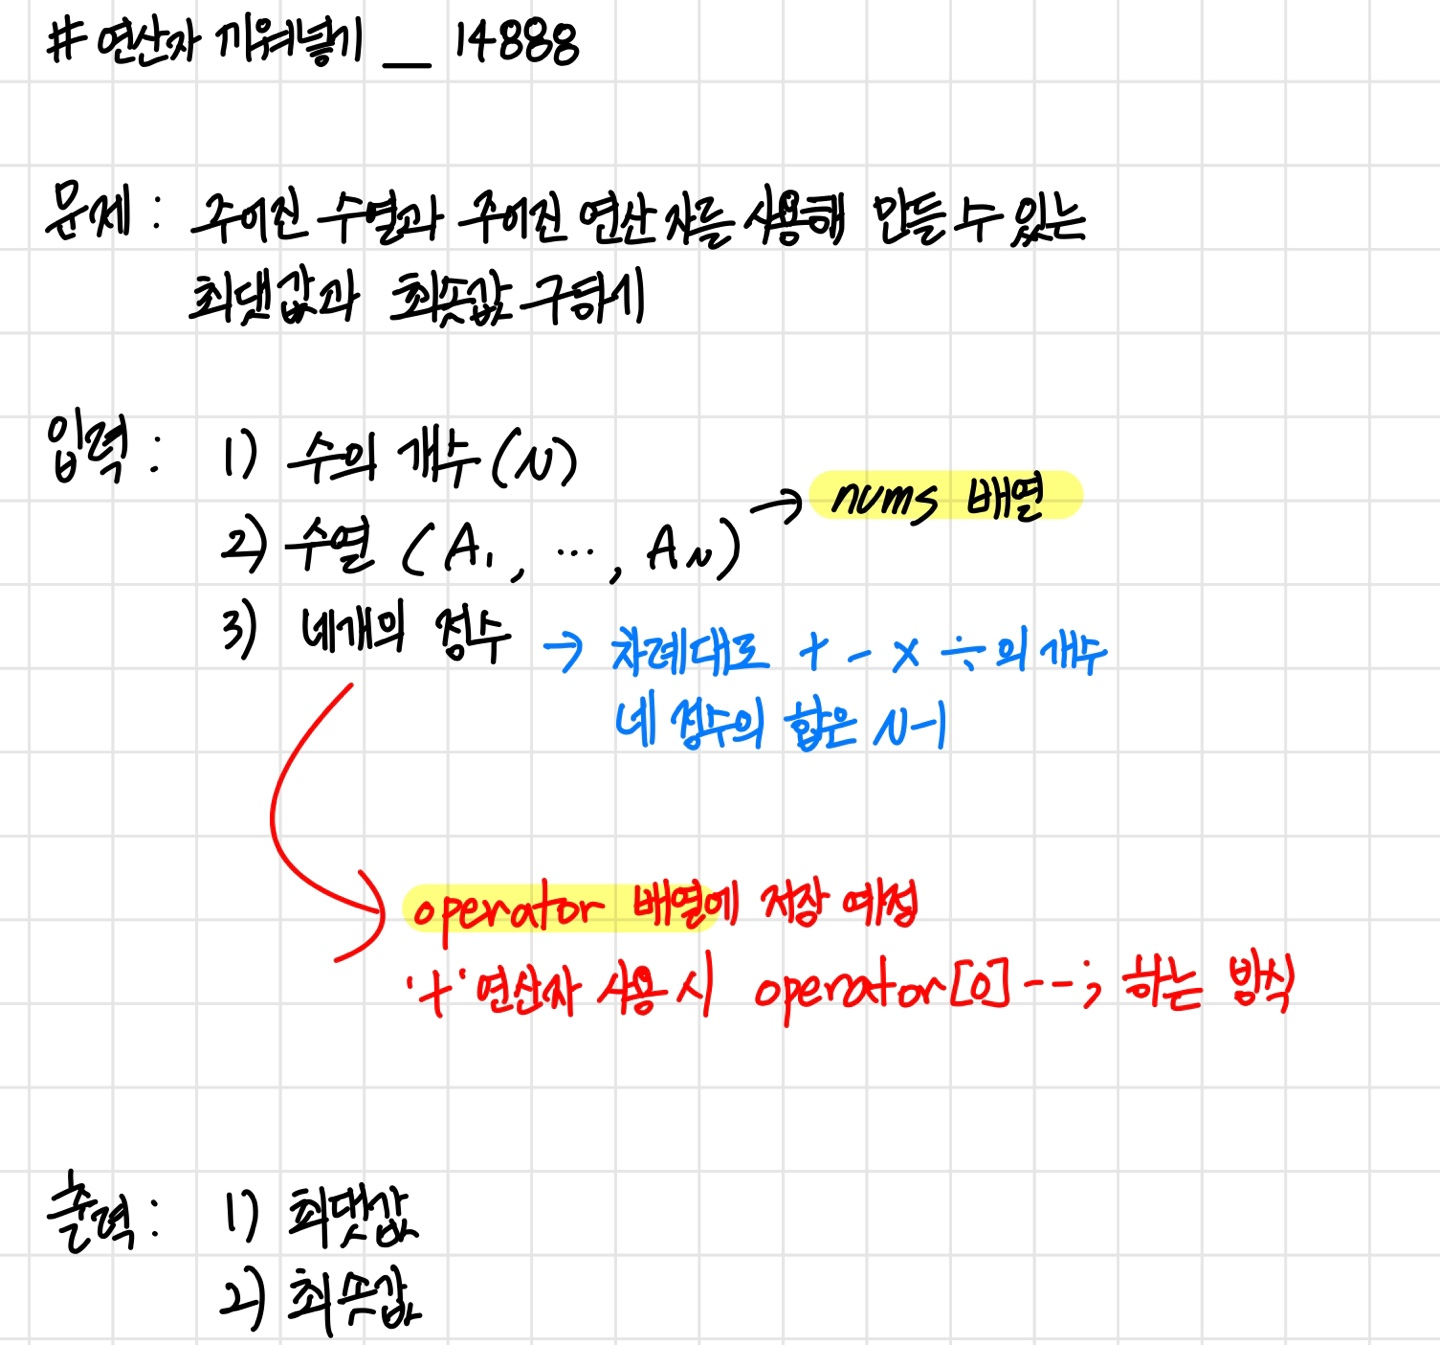 # 연산자 끼워넣기 __ 14888
문제 : 주어진 수열과 주어진 연산자를 사용해 만들 수 있는
최댓값과 최솟값 구하기
입력 : 1) 수의 개수 (N)
2) 수열 (A₁, ..., AN) → nums 배열
3) 네개의 정수 → 차례대로 + - × ÷의 개수
네 정수의 합은 N-1
operator 배열에 저장 예정
'+' 연산자 사용 시 operator[0]--; 하는 방식
출력 : 1) 최댓값
2) 최솟값